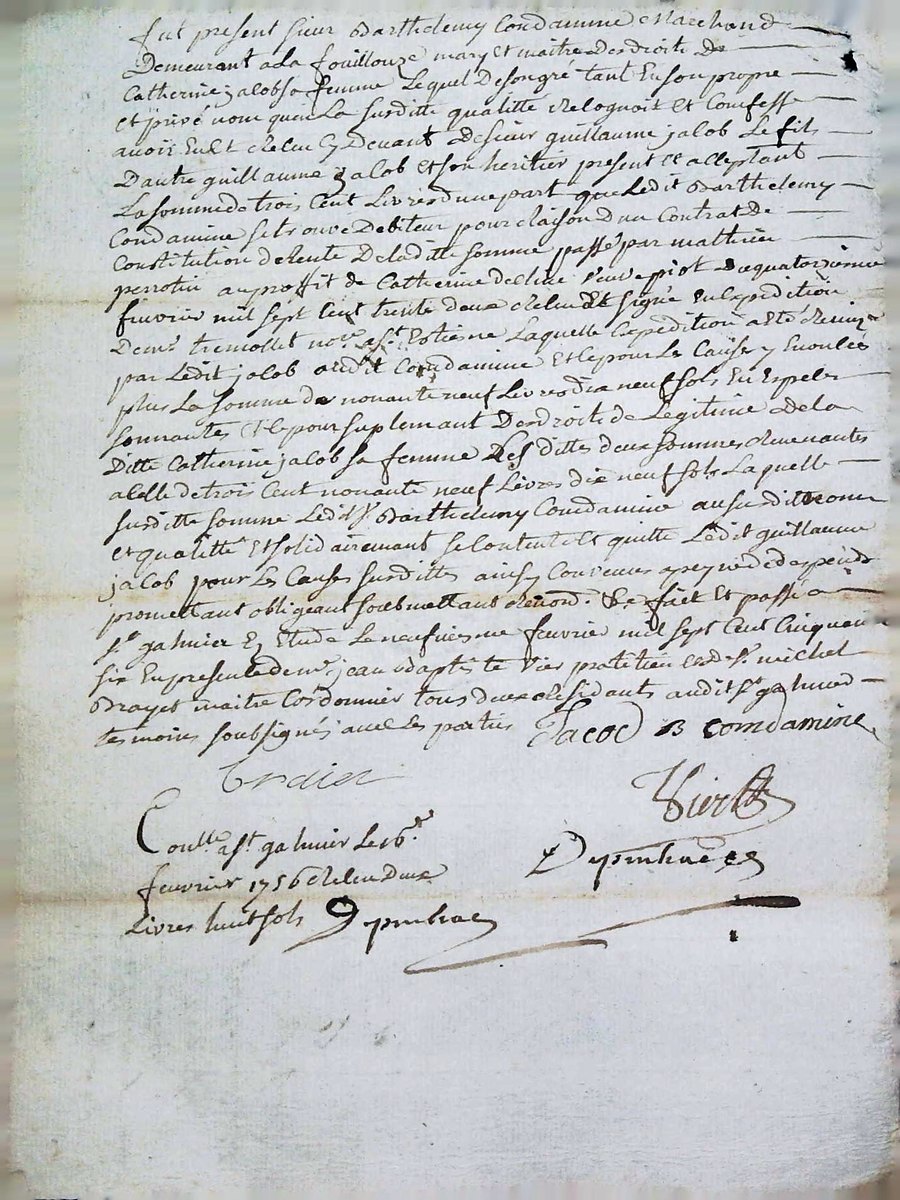 fut present sieur Barthelemy Condamine Marchand
Demeurant a la fouillouze mary et maitre Des droits De
Catherine jacob sa femme Lequel De son gré tant En son propre
et privé nom quen La susditte qualitté Relognoit et Confesse
avoir Eu et Relu Cy Devant De sieur guillaume jacob Le fils
Dautre guillaume jacob et son heritier present et alleptant
La somme de trois Cent Livres Dune part que Ledit Barthelemy
Condamine se trouve Debiteur pour Raison Dun Contrat de
Constitution de Rente De laditte somme passé par mathieu
perrotin au proffit de Catherine veuve piot Du quatorzieme
feuvrier mil sept Cent trente deux Relu Et signé En Expedition
De me tremollet nore a st Estienne Laquelle Expedition a Eté Remize
par Ledit jacob audit Condamine Et le pour Les Causes y Enonlées
plus La somme de nonante neuf Livres dix neuf sols En Espeles
sonnantes Et le pour suplemant Des droits de Legitime De la
Ditte Catherine jacob sa femme Les dittes deux sommes Revenantes
a lelle de trois Cent nonante neuf Livres dix neuf sols Laquelle
susditte somme Ledit sr Barthelemy Condamine au susdit nom
et qualitté Et solidairemant se Contente Et quitte Ledit guillaume
jacob pour Les Causes susdittes ainsy Convenu a peyne de despends
promettant obligeant soubmettant Renond. &c fait Et passé a
st galmier Etude Le neufviesme feuvrier mil sept Cent Cinquante
six En presente de me jean Baptiste Vier pratitien et de sr michel
Brayet maitre Cordonnier tous deux Residants audit st galmier
temoins soubsignés avec Les parties Jacod B comdamine
Vier
Contlle a st galmier Le 16e
feuvrier 1756 Relu deux
Livres huit sols